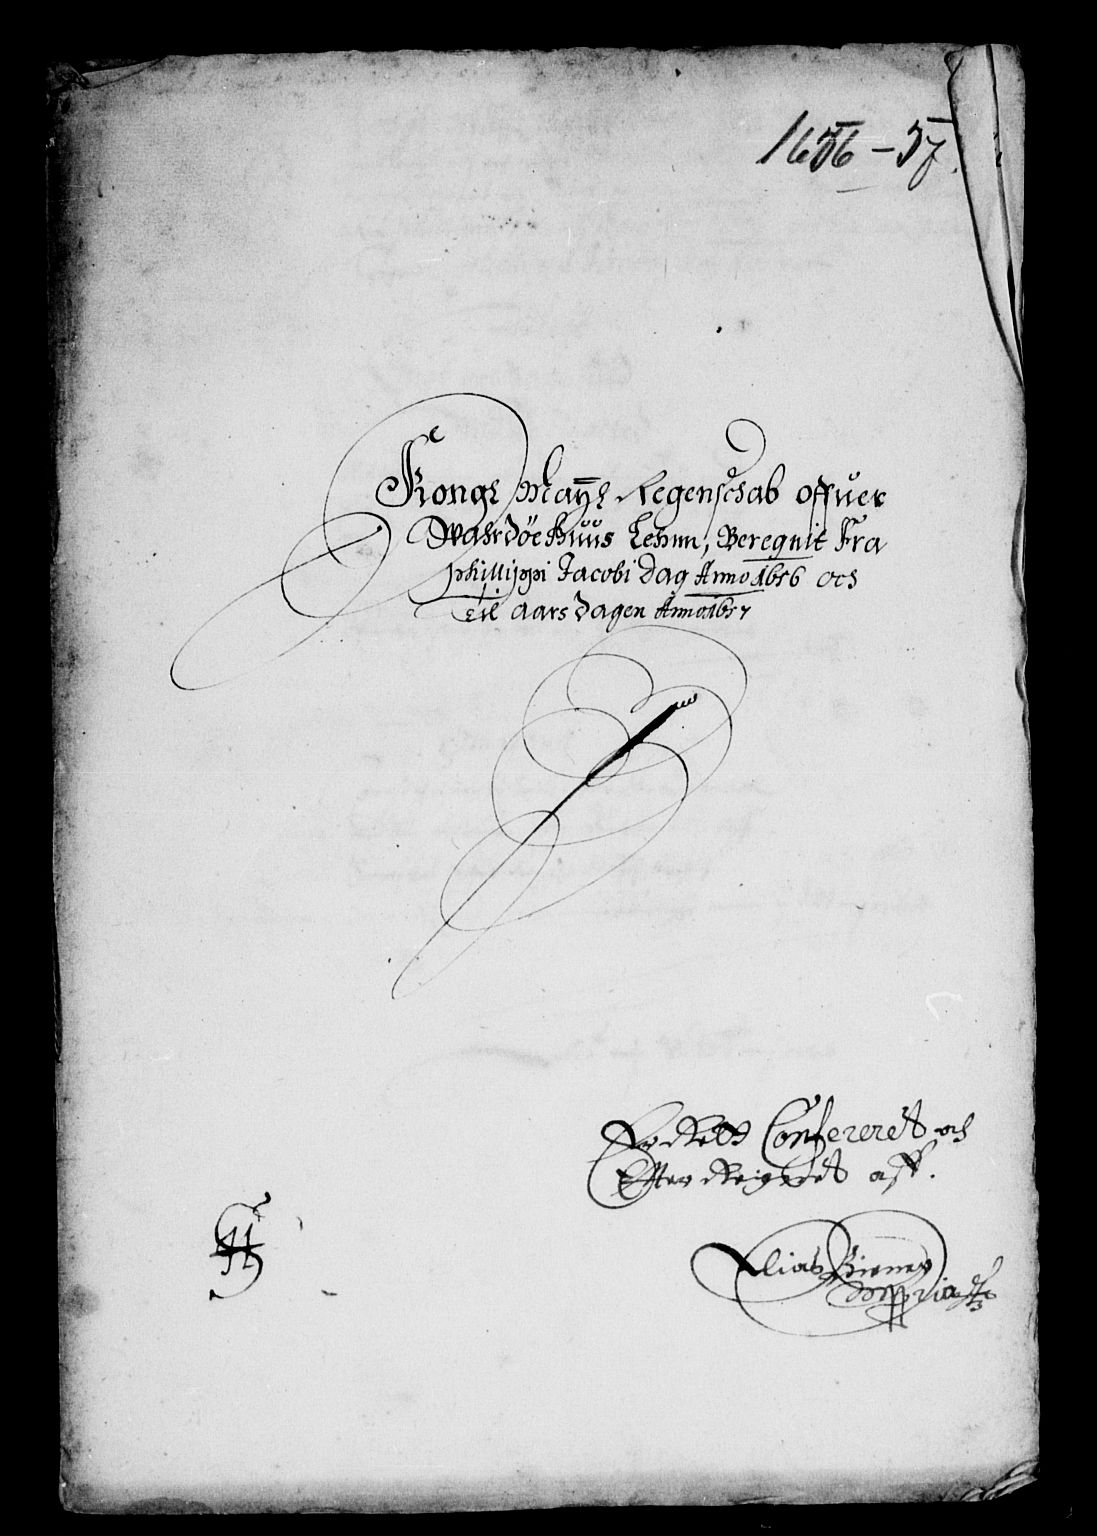 1656-57.
Kongl Mayₜₛ Regenschab offuer
Wahrdöehuus Lehnn, Beregnit Fra
phillippi Jacobi dag Anno 1656 och
til aars dagen Anno 1657
Confereret och
Efter Reignet aff.
Elias
mppria